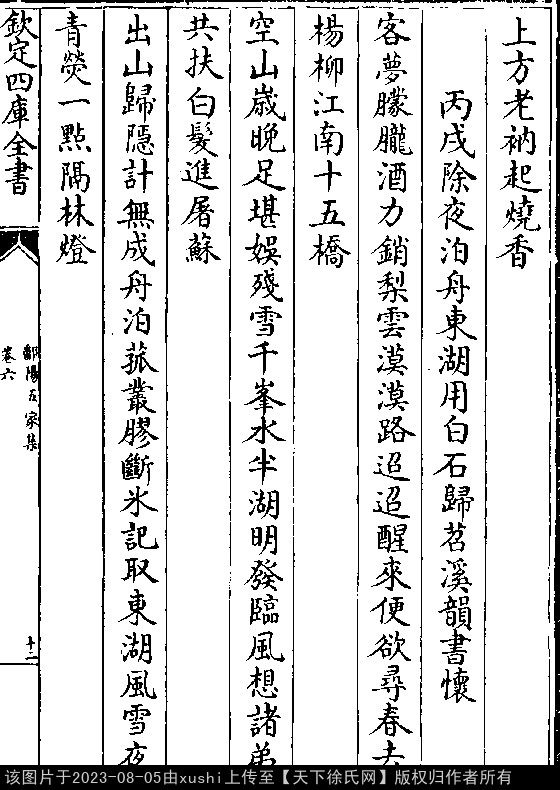 上方老衲起燒香
丙戌除夜泊舟東湖用白石歸苕溪韻書懷
客夢朦朧酒力銷梨雲漠漠路迢迢醒來便欲尋春去
楊柳江南十五橋
空山嵗晚足堪娛殘雪千峯水半湖明發臨風想諸弟
共扶白髮進屠蘇
出山歸隱計無成舟泊菰叢膠斷氷記取東湖風雪夜
青熒一點隔林燈
欽定四庫全書
鄱陽五家集
卷六
十二
该图片于2023-08-05由xushi上传至【天下徐氏网】版权归作者所有